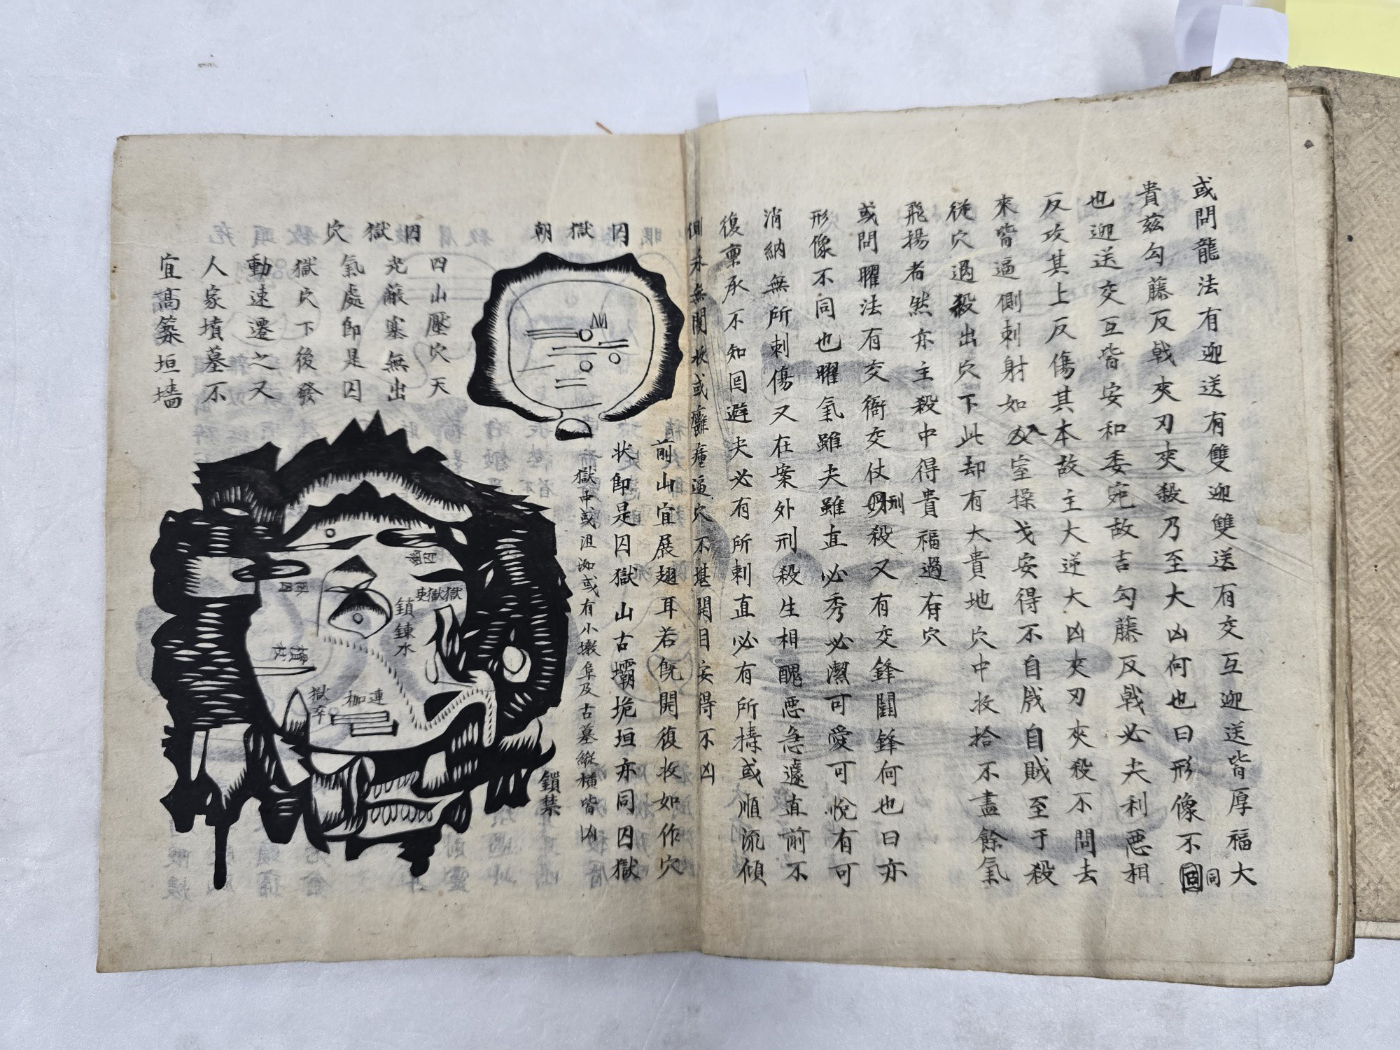 或問龍法有迎送有雙迎雙送有交互迎送皆厚福大
貴茲勾藤反戟夾刃夾殺乃至大凶何也曰形像不同
也迎送交互皆安和委宛故吉勾藤反戟必尖利惡相
反攻其上反傷其本故主大逆大凶夾刃夾殺不問去
來皆逼側刺射如入室操戈安得不自戕自賊至于殺
從穴過殺出穴下此却有大貴地穴中收拾不盡餘氣
飛揚者然亦主殺中得貴福過有穴
或問曜法有交衙交仗刑殺又有交鋒鬪鋒何也曰亦
形像不同也曜氣雖尖雖直必秀必潔可愛可悅有可
消納無所刺傷又在案外刑殺生相醜惡急遽直前不
復稟承不知回避夫必有所刺直必有所擣或順流傾
側
無關
或
逼穴不堪開目安得不凶
囚獄朝
前山宜展翅耳若旣開復收如作穴
狀即是囚獄山古壩垝垣亦同囚獄
獄中或沮洳或有小墩阜及古墓縱橫皆凶
鎖禁
囚獄穴
四山壓穴天
光蔽塞無出
氣處即是囚
獄穴下後發
動速遷之又
人家墳墓不
宜高築垣墻
獄
鎖鍊水
連枷
獄卒